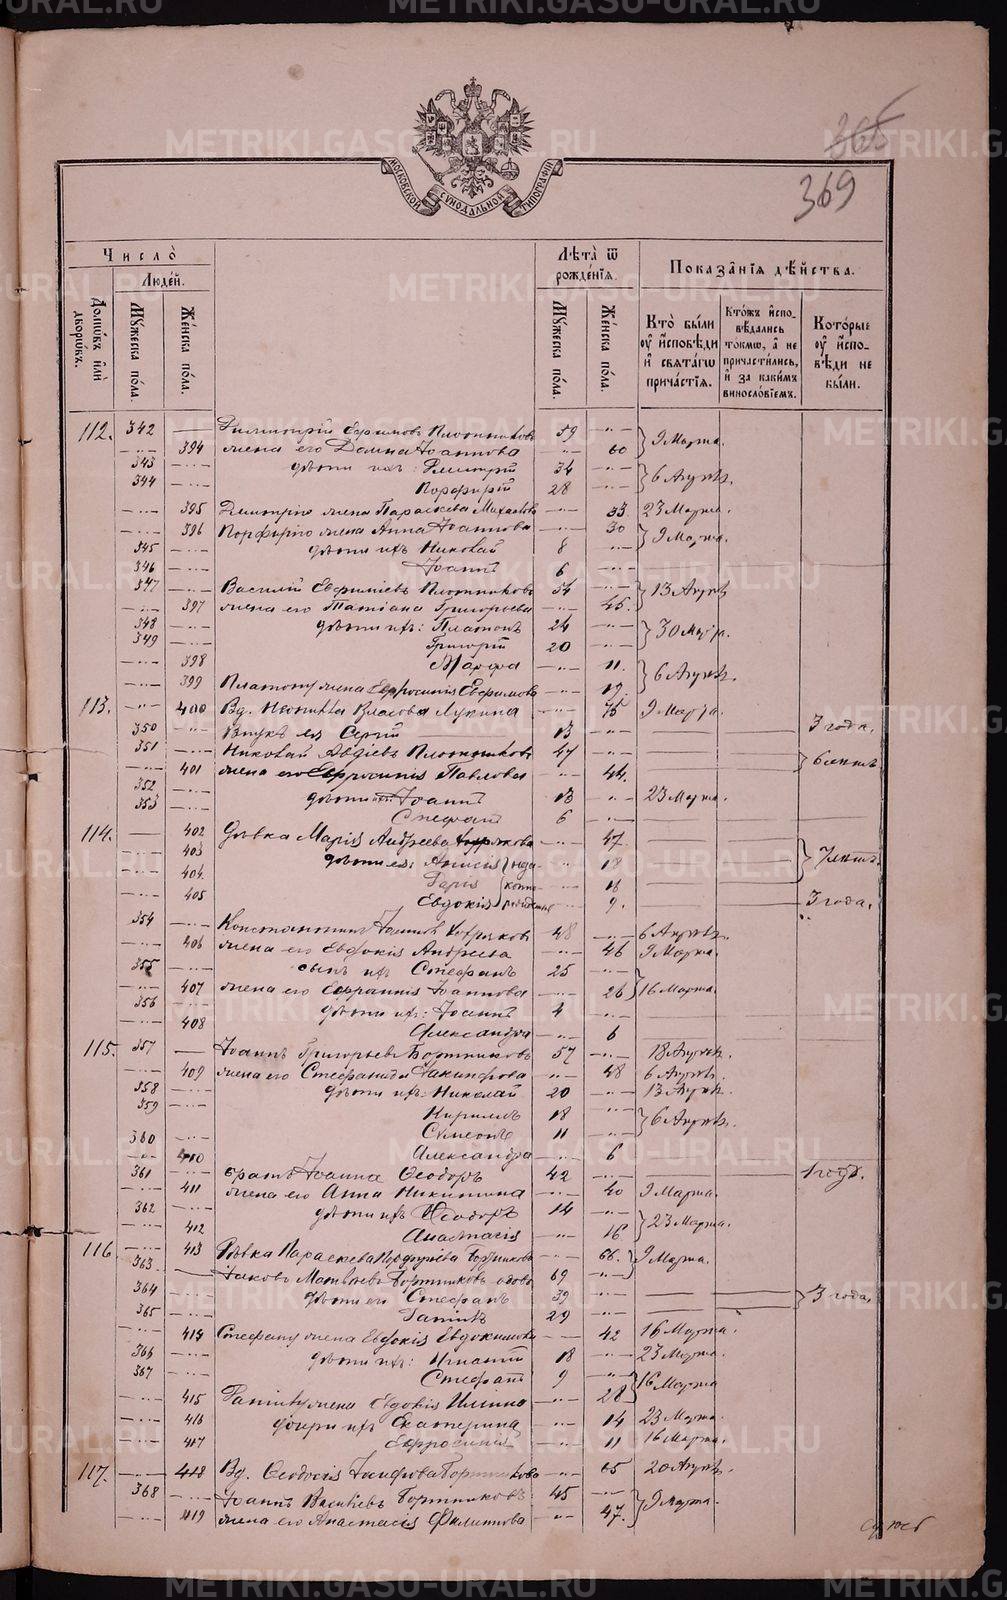 365
369
МОСКОВСКОЙ СѴНОДАЛЬНОЙ ТИПОГРАФІИ
Число̀
Люде́й.
Домѡ́въ и҆лѝ дворѡ́въ.
Мꙋ́жеска по́ла.
Же́нска по́ла.
Лѣ́та ѿ рожде́нїѧ.
Мꙋ́жеска по́ла.
Же́нска по́ла.
Показа̑нїѧ дѣ́йства.
Кто̀ бы́ли оу҆ и҆́сповѣди и҆ свѧта́гѡ прича́стїѧ.
Кто́жъ и҆спо-вѣ́дались то́кмѡ, а҆ не причасти́лись, и҆ за каки́мъ винослові́емъ.
Кото́рые оу҆ и҆спо-вѣди не бы́ли.
112. 342 Димитрій Евфимовъ Плотниковъ 59 9 Марта.
394 жена его Домна Іоаннова 60
343 дѣти ихъ: Димитрій 34 6 Апрѣл.
344 Порфирій 28
395 Димитрію жена Параскева Михайлова 33 23 Марта.
396 Порфирію жена Анна Іоаннова 30 9 Марта.
345 дѣти ихъ Николай 8
346 Іоаннъ 6
347 Василій Евфиміевъ Плотниковъ 54 13 Апрѣл
397 жена его Татіана Григорьева 45.
348 дѣти ихъ: Платонъ 24 30 Марта.
349 Григорій 20
398 Марфа 11. 6 Апрѣл.
399 Платону жена Евфросинія Евфимова 19.
113. 400 Вд. Неонилла Власова Лукина 75 9 Марта.
350 Внукъ ея Сергій 13 3 года.
351 Николай Авдіевъ Плотниковъ 47 6 лѣтъ
401 жена его Евфросинія Павлова 44.
352 дѣти ихъ Іоаннъ 13 23 Марта.
353 Стефанъ 6
114. 402 Дѣвка Марія Андреева 47 7 лѣтъ
403 дѣти ея: Анисія 18
404. Дарія 16
405 Евдокія 9. 3 года.
354 Константинъ Іоанновъ 48 6 Апрѣл.
406 жена его Евдокія Андреева 46 9 Марта.
355 сынъ ихъ Стефанъ 25 16 Марта.
407 жена его Іоаннова 26
356 дѣти ихъ: 4
408 Александра 6
115. 357 Іоаннъ Григорьевъ Бортниковъ 57 18 Апрѣл.
409 жена его Стефанида Іакинфова 48 6 Апрѣл.
358 дѣти ихъ: Николай 20 13 Апрѣл.
359 Кириллъ 18 6 Апрѣл.
360 Сѵмеонъ 11
410 Александра 6
361 братъ Іоанна Ѳеодоръ 42 1 годъ.
411 жена его Анна Никитина 40 9 Марта.
362 дѣти ихъ Ѳеодоръ 14 23 Марта.
412 Анастасія 16
116. 413 Дѣвка Параскева Бортникова 66. 9 Марта.
363. Іаковъ Матвѣевъ Бортниковъ 69
364 дѣти его Стефанъ 39 3 года.
365 Даніилъ 29
414 Стефану жена Евдокія Евдокимова 42 16 Марта.
366 дѣти ихъ: Игнатій 18 23 Марта.
367 Стефанъ 9 16 Марта
415 Даніилу жена Евдокія 28
416 дочери ихъ Екатерина 14 23 Марта.
417 Евфросинія 11 16 Марта.
117. 418 Вд. Ѳеодосія Бортникова 65 20 Апрѣл.
368 Іоаннъ Васильевъ Бортниковъ 45 9 Марта.
419 жена его Анастасія Филиппова 47.
METRIKI.GASO-URAL.RU